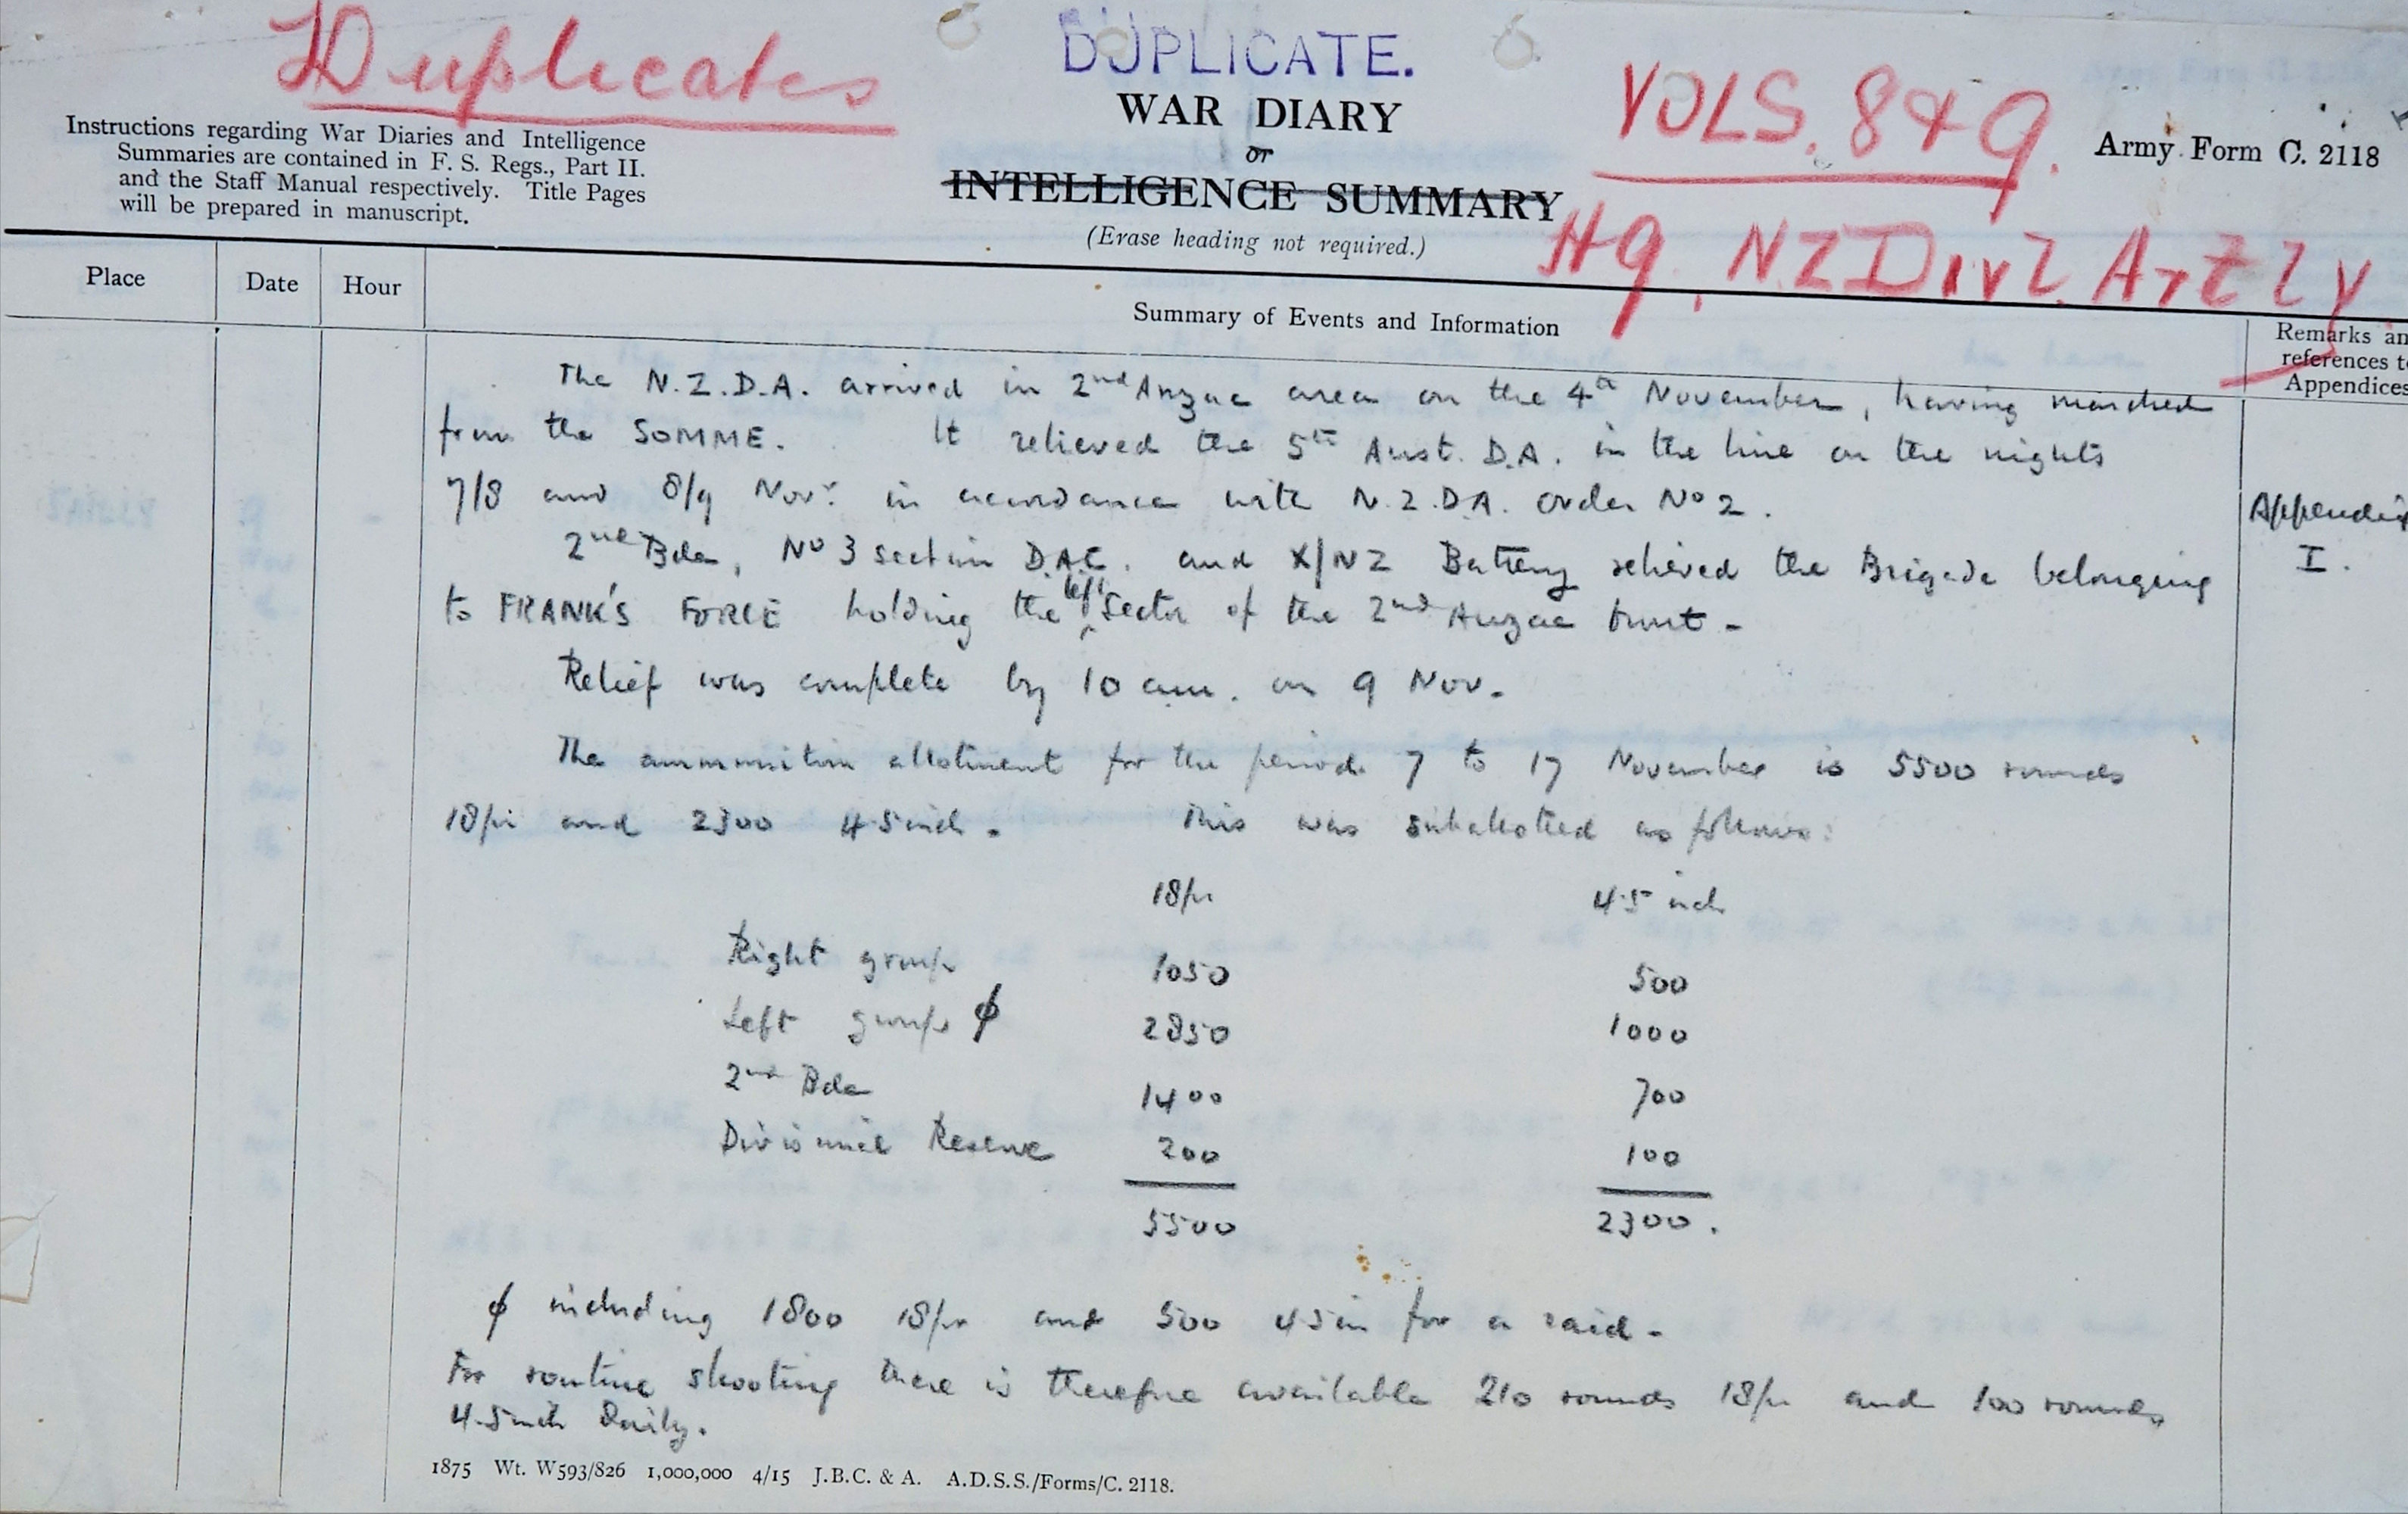 Duplicates
DUPLICATE.
VOLS. 8 & 9.
WAR DIARY
or
INTELLIGENCE SUMMARY
(Erase heading not required.)
Instructions regarding War Diaries and Intelligence
Summaries are contained in F. S. Regs., Part II.
and the Staff Manual respectively. Title Pages
will be prepared in manuscript.
Army Form C. 2118
Hq. N Z Divl. Artly
Place Date Hour Summary of Events and Information
Remarks an
references to
Appendices
The N.Z.D.A. arrived in 2nd Anzac area on the 4th November, having marched
from the SOMME. It relieved the 5th Aust. D.A. in the line on the nights
7/8 and 8/9 Novr. in accordance with N.Z.D.A. order No 2.
Appendix
I.
2nd Bde, No 3 section D.A.C. and X/NZ Battery relieved the Brigade belonging
to FRANK'S FORCE holding the left Sector of the 2nd Anzac front -
Relief was complete by 10 am. on 9 Nov.
The ammunition allotment for the period 7 to 17 November is 5500 rounds
18/pr and 2300 4.5 inch. This was suballotted as follows:
18/pr 4.5 inch
Right group 1050 500
Left group ϕ 2850 1000
2nd Bde 1400 700
Divisional Reserve 200 100
5500 2300.
ϕ including 1800 18/pr and 500 4.5 in for a raid -
For routine shooting there is therefore available 210 rounds 18/pr and 100 rounds
4.5 inch Daily.
1875 Wt. W593/826 1,000,000 4/15 J.B.C. & A. A.D.S.S./Forms/C. 2118.